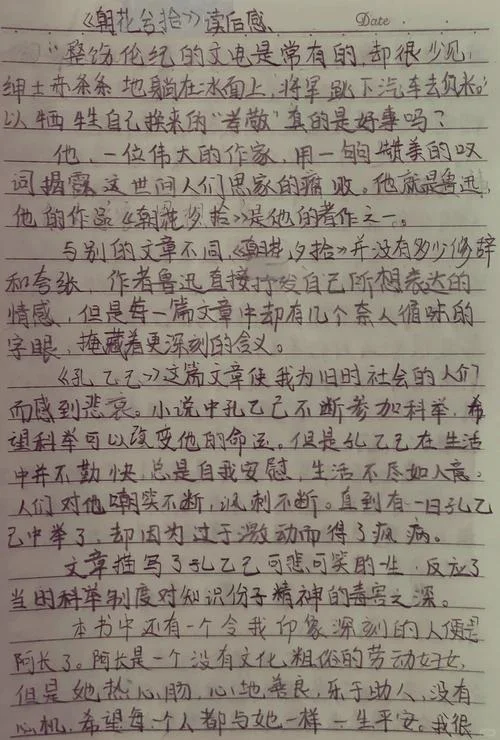 《朝花夕拾》读后感 Date
"整饬伦纪的文电是常有的,却很少见
绅士赤条条地躺在冰面上,将军跳下汽车去负米。"
以牺牲自己换来的"孝敬"真的是好事吗?
他,一位伟大的作家,用一句句赞美的叹
词揭露这世间人们思家的痛 。他就是鲁迅,
他的作品《朝花夕拾》是他的著作之一。
与别的文章不同,《朝花夕拾》并没有多少修辞
和夸张,作者鲁迅直接抒发自己所想表达的
情感,但是每一篇文章中却有几个奈人循味的
字眼,掩藏着更深刻的含义。
《孔乙己》这篇文章使我为旧时社会的人们
而感到悲哀。小说中孔乙己不断参加科举,希
望科举可以改变他的命运。但是孔乙己在生活
中并不勤快,总是自我安慰,生活不尽如人意。
人们对他嘲笑不断,讽刺不断。直到有一日孔乙
己中举了,却因为过于激动而得了疯病。
文章描写了孔乙己可悲可笑的一生,反应了
当时科举制度对知识份子精神的毒害之深。
本书中还有一个令我印象深刻的人便是
阿长了。阿长是一个没有文化,粗俗的劳动妇女,
但是她热心肠,心地善良,乐于助人,没有
心机,希望每一个人都与她一样一生平安。我很